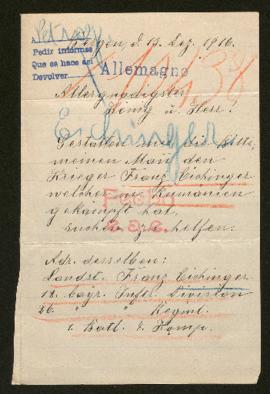 d. 13. Dez. 1916.
Pedir informes
Que se hace así
Devolver
Allemagne
Allergnädigster
König u. Herr!
Eichinger
Gestatten mir die Bitte,
meinen Mann den
Krieger Franz Eichinger
welcher in Rumänien
gekämpft hat,
suchen zu helfen.
Adr. desselben:
Landst. Franz Eichinger
12. bayr. Inftr. Division
26. " " Regmt.
1. Batl. 2. Komp.